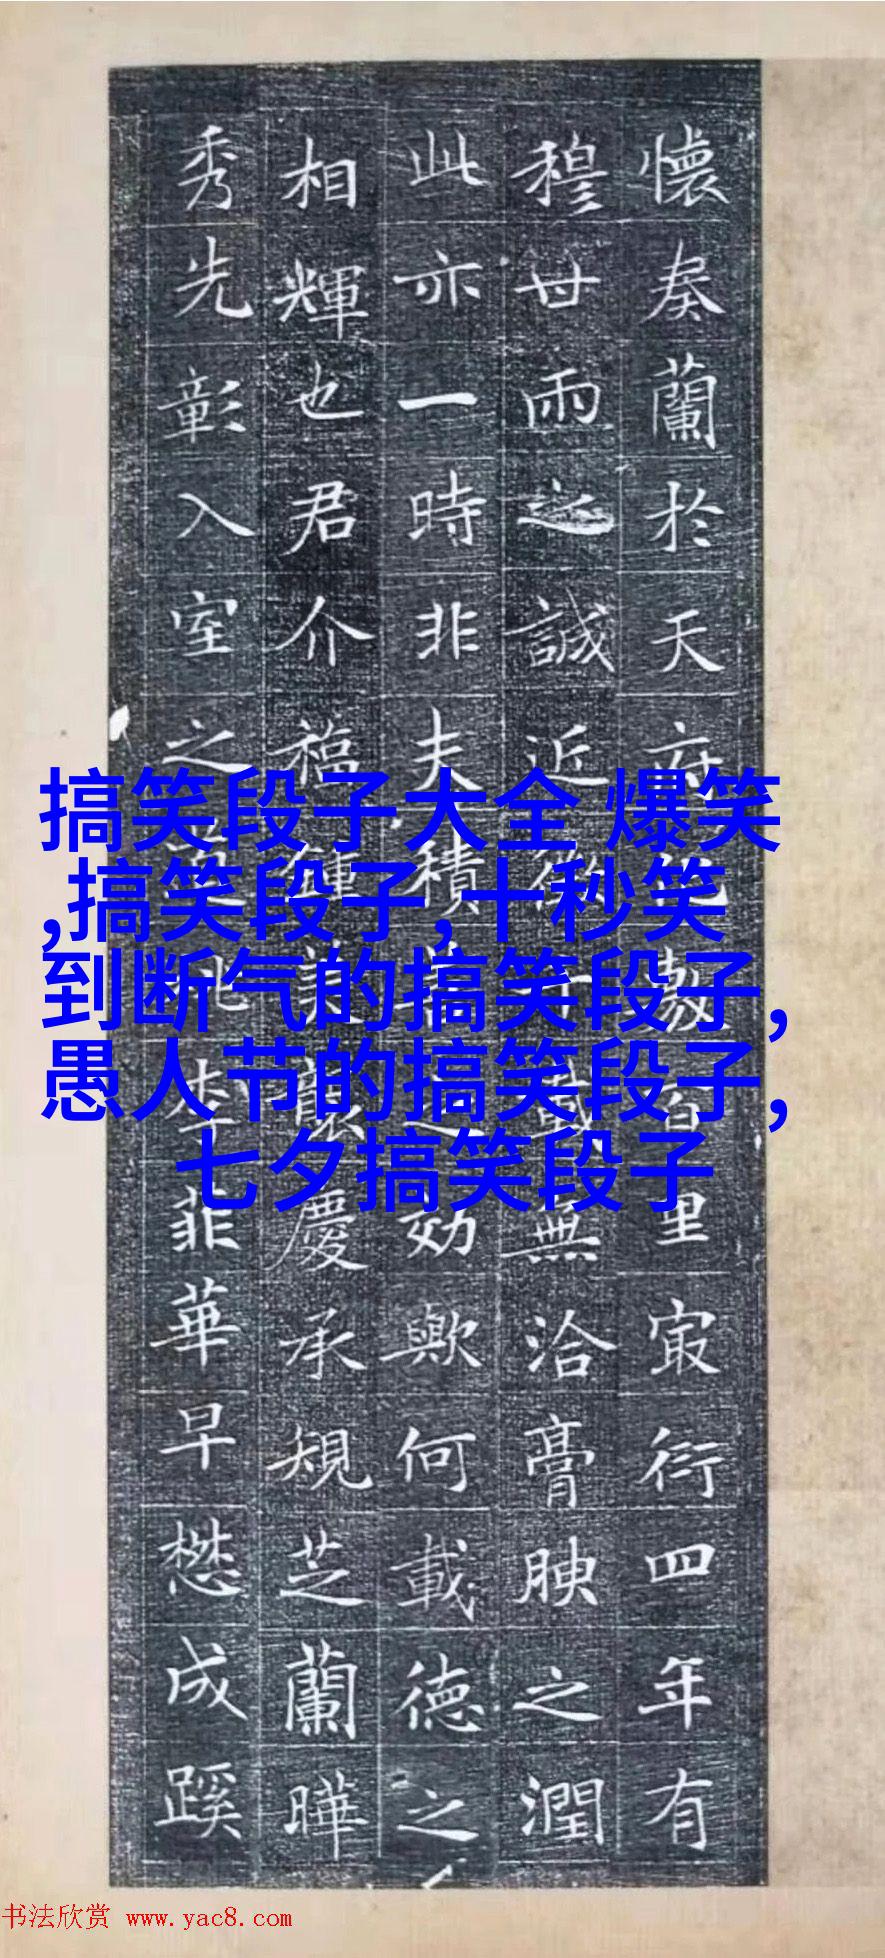 懷奏蘭於天府里冣衍四年有
穆世雨之誠近無洽膏腴之潤
此亦一時非夫積之効歟何載德之
相輝也君介福鍾美慶承規芝蘭曄
秀先彰入室之李菲華早懋成蹊
搞笑段子大全 爆笑
,搞笑段子,十秒笑
到断气的搞笑段子,
愚人节的搞笑段子,
七夕搞笑段子
书法欣赏 www.yac8.com